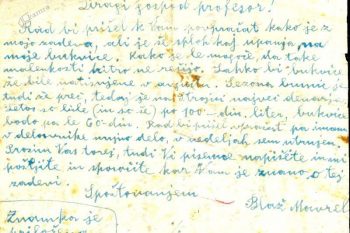 Dragi gospod profesor!
Rad bi prišel k Vam povprašat kako je z
mojo zadevo, ali je še sploh kaj upanja na
moje bukvice. Kako je le mogoče, da take
malenkosti hitro ne
že bile natisnjene v avgustu. Sezona
tudi že prej, sedaj je na Štrojni največ denarja
letos so bile (in so še) po 100- din liter, bukvice
bodo pa le 60-din. Rad bi prišel vprašat pa imam
v delavnike nujno delo, v nedeljah sem utrujen.
Prosim Vas torej, tudi Vi pismeno napišite in mi
pošljite in sporočite kar Vam je znano o tej
zadevi.
Spoštovanjem
Blaž Mavrel
Znamka je
priložena